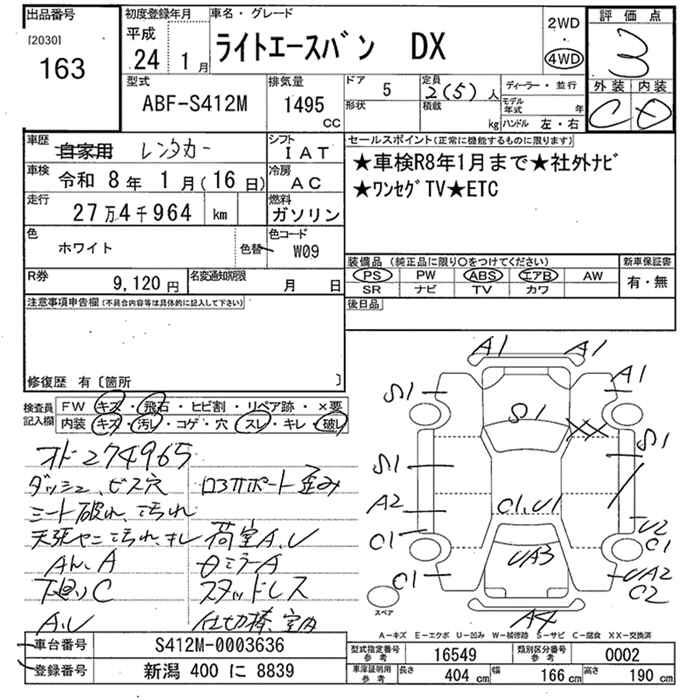 出品番号
[2030]
163
初度登録年月
平成
24 1月
車名・グレード
ライトエースバン DX
2WD
4WD
評価点
3
外装 内装
C D
型式
ABF-S412M
排気量
1495
CC
ドア
5
形状
定員
2(5)人
積載
kg
ディーラー・並行
モデル年式 年
ハンドル 左・右
車歴
自家用 レンタカー
シフト
IAT
車検
令和 8年 1月(16日)
冷房
AC
走行
27万4千964 km
燃料
ガソリン
色
ホワイト
色替
色コード
W09
R券
9,120円
名変通知期限
月 日
セールスポイント(正常に機能するものに限ります)
★車検R8年1月まで★社外ナビ
★ワンセグTV★ETC
装備品(純正品に限り○をつけてください)
PS PW ABS エアB AW
SR ナビ TV カワ
新車保証書
有・無
後日品
注意事項申告欄(不具合内容等は具体的に記入して下さい)
修復歴 有〔箇所 〕
検査員記入欄
FW キズ・飛石・ヒビ割・リペア跡・×要
内装 キズ・汚レ・コゲ・穴・スレ・キレ・破レ
オド274965
ダッシュ、ビス穴
シート破れ、汚れ
天張ヤニ汚れ、キレ
A、A
下廻りC
A、U
コアサポート歪み
荷室A、U
ミラーA
スタッドレス
仕切棒、室内
A1 A1
S1 A1
S1
S1 S1
A2 C1、U1
U2
C1 C1
UA3
C1 UA2
C2
A4
スペア
A-キズ E-エクボ U-凹み W-補修跡 S-サビ C-腐食 XX-交換済
車台番号 S412M-0003636
登録番号 新潟 400 に 8839
型式指定番号 参考 16549
類別区分番号 参考 0002
車庫証明用 参考
長さ 404 cm
幅 166 cm
高さ 190 cm